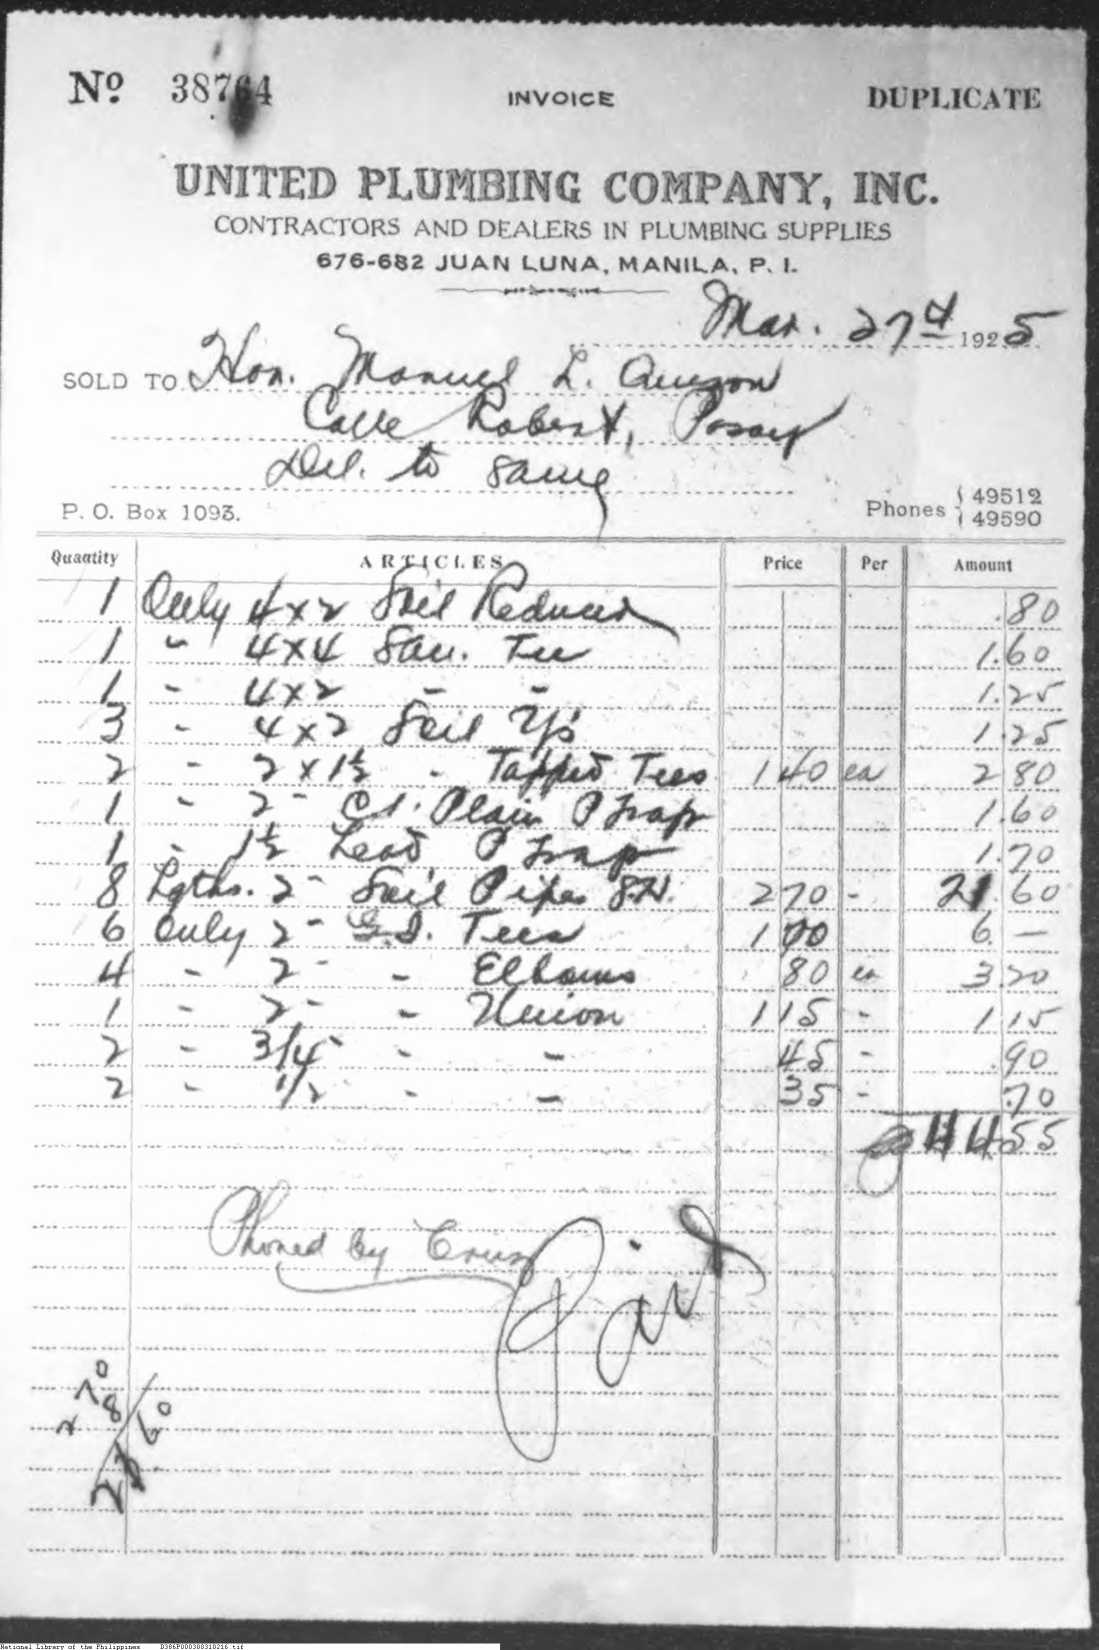 No. 38764 INVOICE DUPLICATE
UNITED PLUMBING COMPANY, INC.
CONTRACTORS AND DEALERS IN PLUMBING SUPPLIES
676-682 JUAN LUNA, MANILA, P. I.
Mar. 27th 1925
SOLD TO Hon. Manuel L. Quezon
Calle Robert, Pasay
Del. to same
P. O. Box 1093. Phones { 49512
49590
Quantity ARTICLES Price Per Amount
1 Only 4 x 2 Soil Reducer .80
1 " 4x4 San. Tee 1.60
1 " 4x2 " " 1.25
3 " 4x2 Soil Ys 1.25
2 " 2 x 1½ " Tapped Tees 1 40 ea 2 80
1 " 2" C.I. Plain P Trap 1.60
1 " 1½ Lead P Trap 1.70
8 Lgths. 2" Soil Pipes S.H. 2 70 " 21.60
6 Only 2" G.I. Tees 1 00 6. —
4 " 2" " Elbows 80 ea 3.20
1 " 2" " Union 1 15 " 1.15
2 " 3/4" " " 45 " .90
2 " 1/2" " " 35 " .70
44.55
Phoned by Cruz
Paid
2 70
8
21 60
National Library of the Philippines D386P000300310216.tif